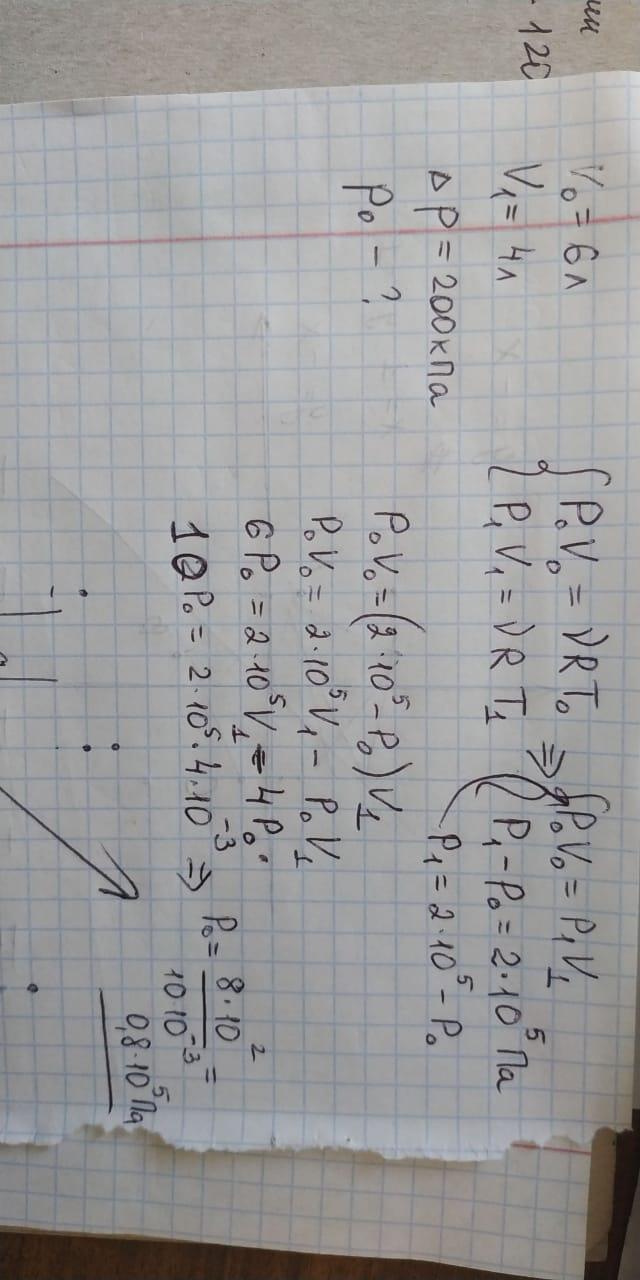 ин
120
V₀ = 6л
V₁ = 4л
Δ P = 200 кПа
P₀ – ?
{ P₀V₀ = νRT₀
{ P₁V₁ = νRT₁
⇒ { P₀V₀ = P₁V₁
{ P₁ – P₀ = 2·10⁵ Па
P₁ = 2·10⁵ – P₀
P₀V₀ = (2·10⁵ – P₀)V₁
P₀V₀ = 2·10⁵V₁ – P₀V₁
6P₀ = 2·10⁵V₁ – 4P₀.
10P₀ = 2·10⁵·4·10⁻³ ⇒ P₀ = 8·10² / 10·10⁻³ =
0,8·10⁵ Па